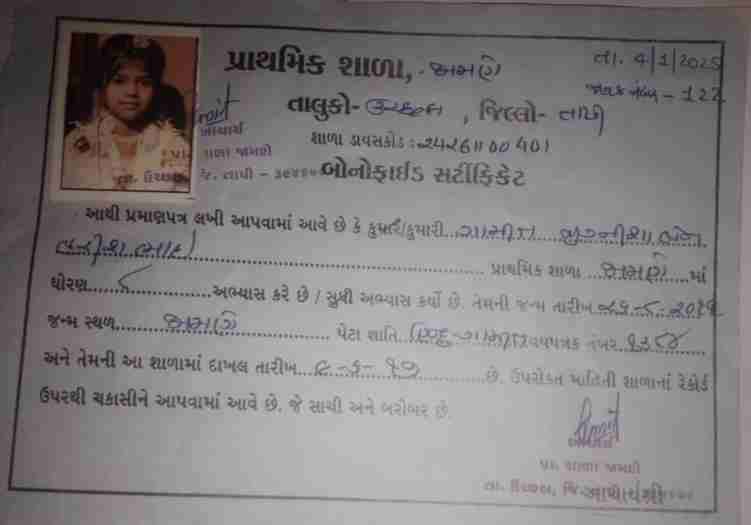 પ્રાથમિક શાળા, જામણે તા. 4/1/2025
જાવક નંબર - 122
તાલુકો- ઉચ્છલ, જિલ્લો- તાપી
આચાર્ય
શાળા ડાયસકોડ : 24261100401
પ્રા. શાળા જામણે
તા. ઉચ્છલ, જિ. તાપી - બોનોફાઈડ સર્ટીફિકેટ
આથી પ્રમાણપત્ર લખી આપવામાં આવે છે કે કુમાર/કુમારી ગામીત
પ્રાથમિક શાળા જામણે માં
ધોરણ ૮ અભ્યાસ કરે છે / સુધી અભ્યાસ કર્યો છે. તેમની જન્મ તારીખ
જન્મ સ્થળ જામણે પેટા જ્ઞાતિ હિન્દુ-ગામીત વયપત્રક નંબર ૧૩૮૪
અને તેમની આ શાળામાં દાખલ તારીખ છે. ઉપરોક્ત માહિતી શાળાનાં રેકોર્ડ
ઉપરથી ચકાસીને આપવામાં આવે છે. જે સાચી અને બરોબર છે.
આચાર્ય
પ્રા. શાળા જામણે
તા. ઉચ્છલ, જિ. આચાર્યશ્રી